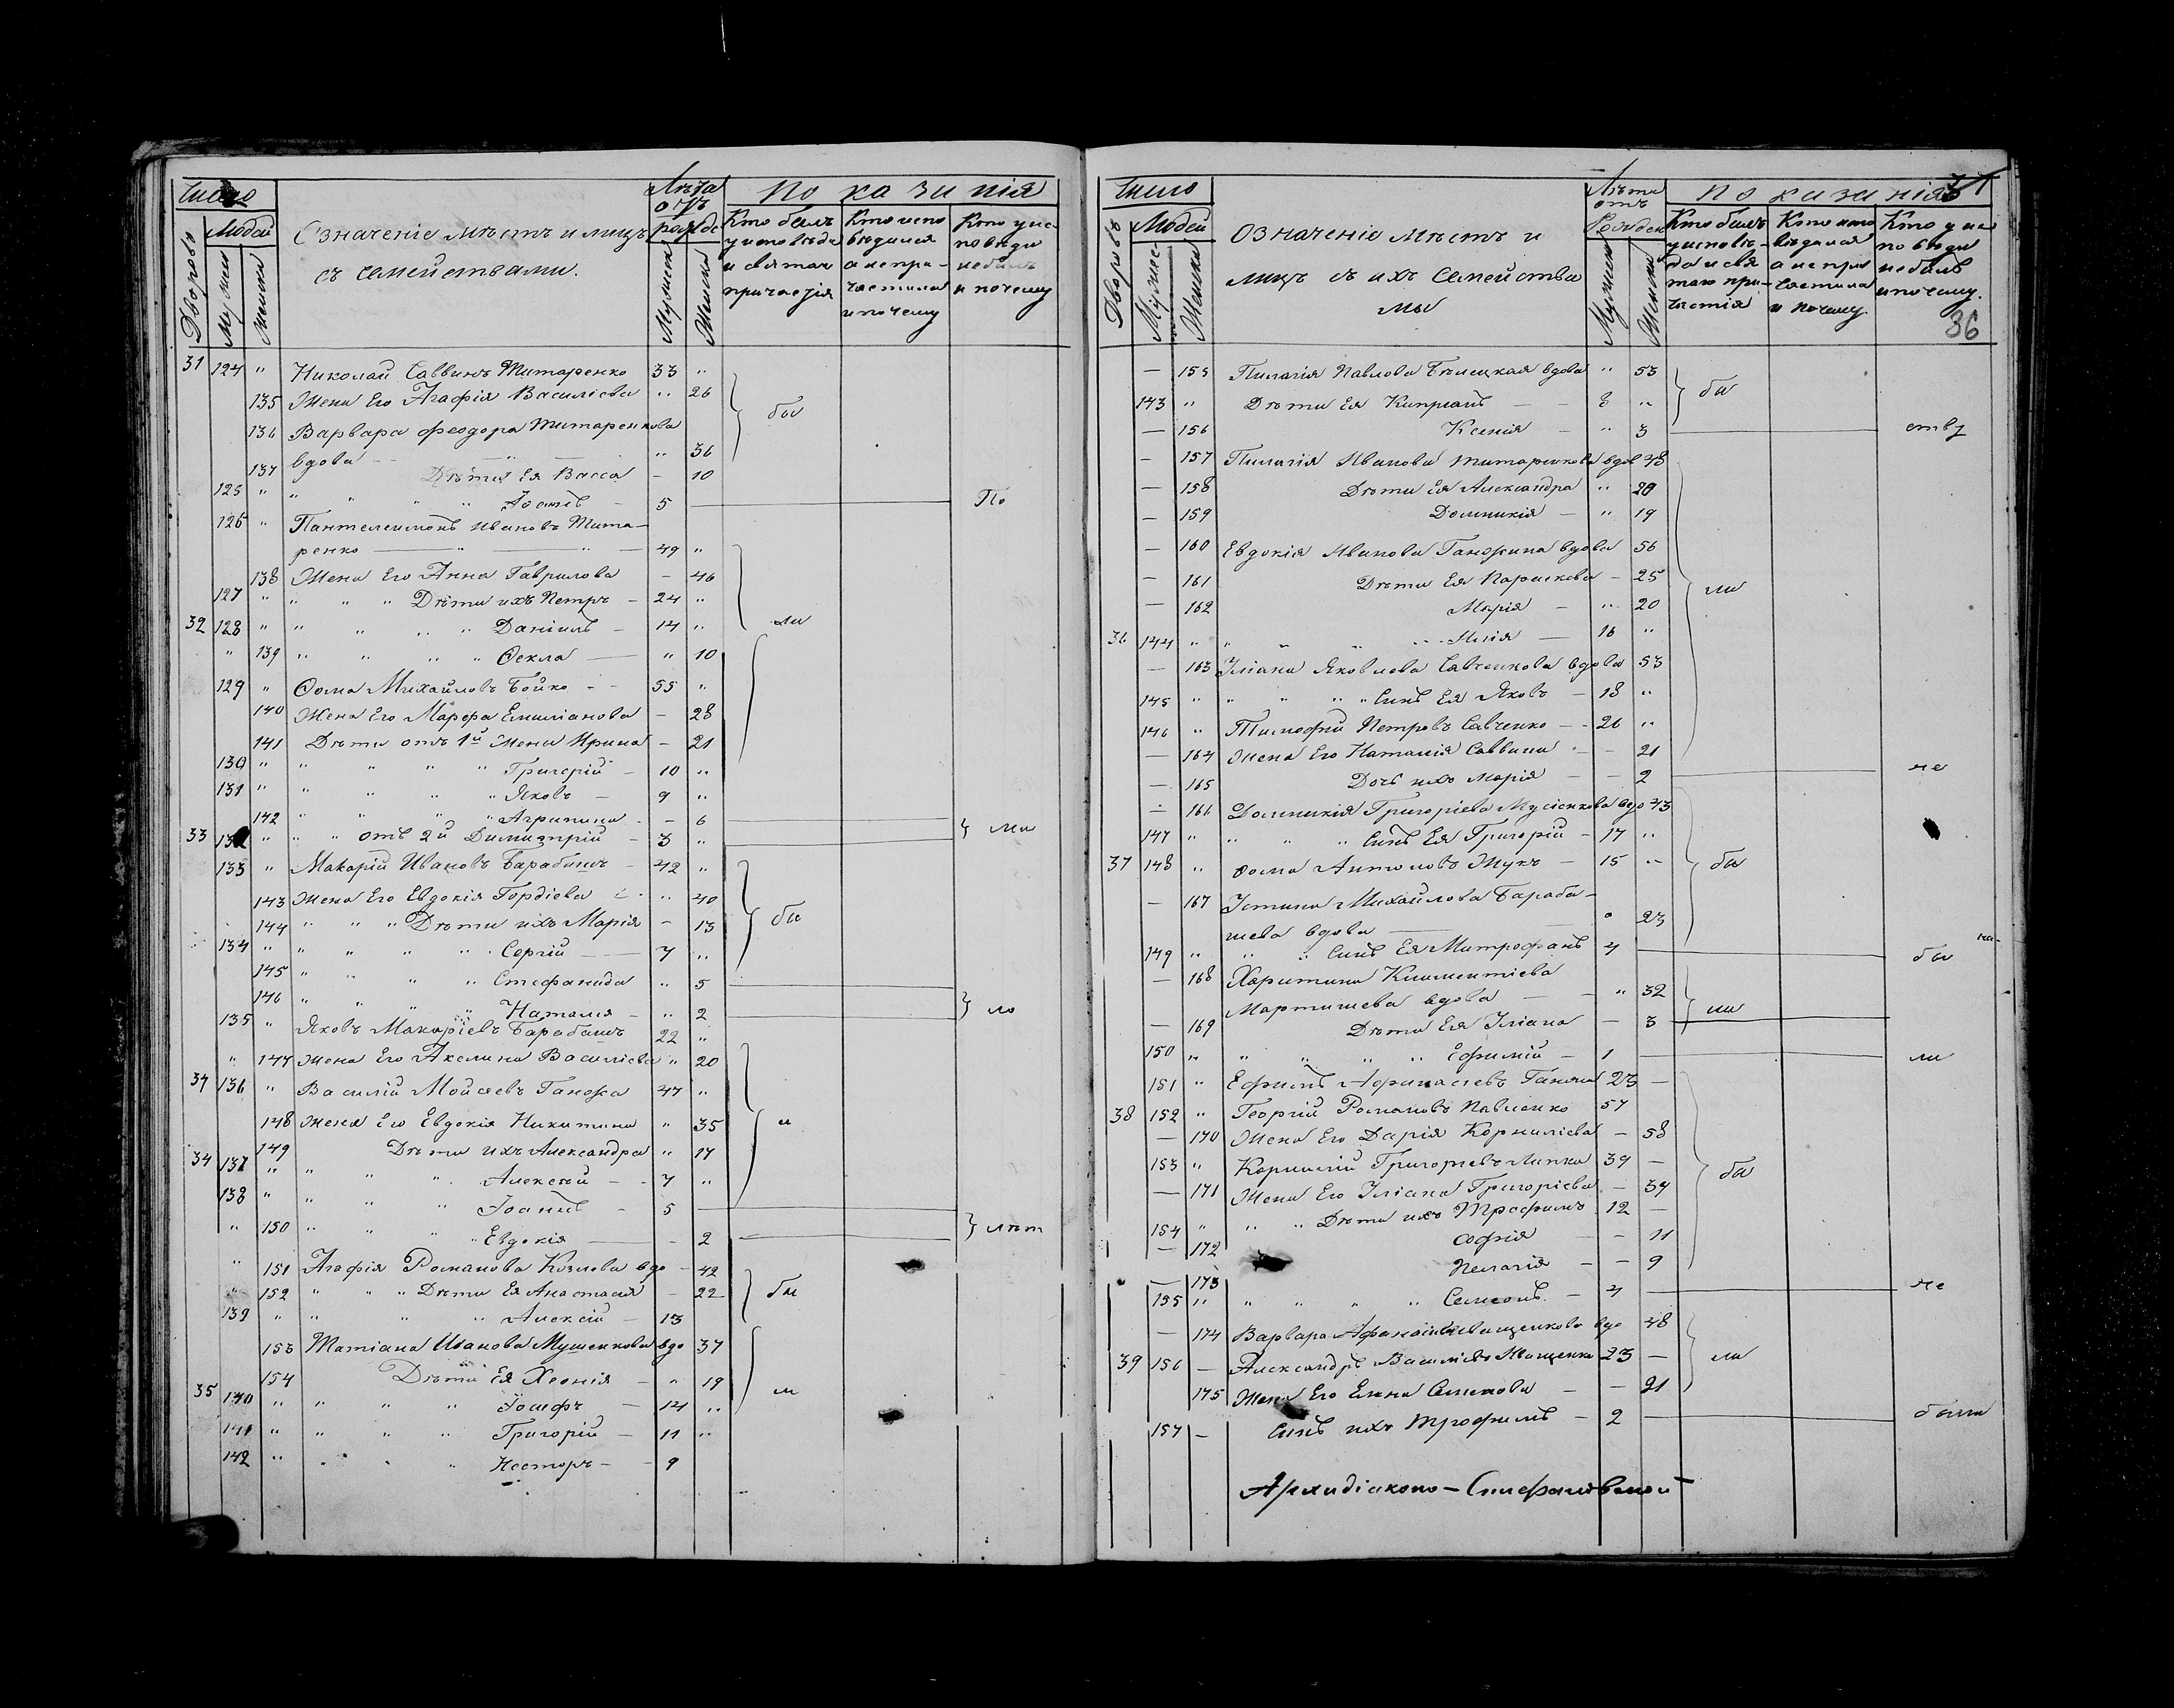 Число
Дворовъ
Людей
Мужеск
Женска
Означеніе мѣстъ и лицъ
съ семействами.
Лѣта
отъ
рожде
Мужеск
Женска
Показанія
Кто былъ
у исповѣди
и святаго
причастія
Кто испо
вѣдался
а не при-
частился
и почему
Кто у ис
повѣди
не былъ
и почему
31 124 " Николай Саввинъ Титаренко 33 "
135 Жена Его Агафія Василіева " 26
бы
136 Варвара Феодора Титаренкова
вдова " 36
137 Дѣти Ея Васса - 10
125 " " " " Іоаннъ - 5 По
126 " Пантелеимонъ Ивановъ Тита-
ренко " " 49 "
138 Жена Его Анна Гаврилова - 46
127 " " " " Дѣти ихъ Петръ - 24 "
32 128 " " " " " Даніилъ - 14 "
ли
" 139 " " " " Ѳекла " 10
129 " Ѳома Михайловъ Бойко - - 55 "
140 Жена Его Марфа Емиліанова - 28
141 Дѣти отъ 1й Жены Ирина - 21
130 " " " " " Григорій - 10 "
131 " " " " " Яковъ - 9 "
142 " " " " Агрипина - - 6
33 132 " " " отъ 2й Димитрій - 3 "
ли
133 " Макарій Ивановъ Барабашъ - 42 "
143 Жена Его Евдокія Гордіева " 40
144 " " " Дѣти ихъ Марія - 13
бы
134 " " " " " Сергій 7 "
145 " " " " Стефанида " 5
146 " " " " Наталія - " 2
ло
135 " Яковъ Макаріевъ Барабашъ 22 "
" 147 Жена Его Акелина Василіева " 20
34 136 " Василій Мойсеевъ Ганжа 47 "
148 Жена Его Евдокія Никитина " 35
149 Дѣти ихъ Александра " 17
34 137 " " " " Алексѣй - - 7 "
138 " " " " Іоаннъ - 5
" 150 " " " " Евдокія - 2
лѣт
" 151 Агафія Романова Козлова вдо - 42
" 152 " " " Дѣти Ея Анастасія - 22
бы
139 " " " " Алексій - 13
153 Татіана Иванова Мушенкова вдо 37
154 Дѣти Ея Хеонія - " 19
35 140 " " " " Іосифъ - 14 "
141 " " " " Григорій - 11 "
142 " " " " Несторъ - - 9
Число
Дворовъ
Людей
Мужес
Женска
Означеніе мѣстъ и
лицъ съ ихъ семейства
мы
Лѣта
отъ
Рожден
Мужеск
Женска
Показанія
Кто былъ
у исповѣ-
ди и свя
таго при-
частія
Кто испо
вѣдался
а не при
частился
и почему.
Кто у ис
повѣди
не былъ
и почему.
36
— 155 Пилагія Павлова Бѣлецкая вдова " 53
бы
143 " Дѣти Ея Кипріанъ - - 8 "
— 156 Ксенія - " 3 ству
— 157 Пилагія Иванова Титаренкова вдов 48
— 158 Дѣти Ея Александра " 20
— 159 Домникія - " 19
— 160 Евдокія Иванова Ганжина вдова 56
— 161 Дѣти Ея Параскева - 25
ли
— 162 Марія - " 20
36 144 " " " " Илія - 16 "
— 163 Уліана Яковлева Савченкова вдова 53
145 " " " " Сынъ Ея Яковъ - 18 "
146 " Тимофій Петровъ Савченко - - 26 "
— 164 Жена Его Наталія Саввина - - 21
— 165 Дочь ихъ Марія - - 2 не
— 166 Домникія Григоріева Мусіенкова вдо 43
147 " " " " Сынъ Ея Григорій - 17 "
37 148 " Ѳома Антоновъ Жукъ - 15 "
бы
— 167 Устина Михайлова Бараба-
шева вдова " 23
149 " " " Сынъ Ея Митрофанъ 4 бы
— 168 Харитина Климентіева
Мартишева вдова - - " 32
ли
— 169 Дѣти Ея Уліана - 3
150 " " " " " Ефимій - 1 ли
151 " Ефимъ Афинасіевъ Ганжа 23 —
38 152 " Георгій Романовъ Павленко 57
— 170 Жена Его Дарія Корниліева - 58
153 " Корнилій Григоріевъ Липка 39 —
— 171 Жена Его Уліана Григоріева - 34
бы
154 " " " Дѣти ихъ Трофимъ 12 —
— 172 Софія - - 11
— 173 Пелагія - - 9
155 " " " " " Семеонъ. - 4 не
— 174 Варвара Афанасіева Иващенкова вдо 48
39 156 — Александръ Василіевъ Иващенко 23 —
ли
175 Жена Его Елена Семенова - - 21
157 — Сынъ ихъ Трофимъ - 2 были
Архидіаконо-Стефановской